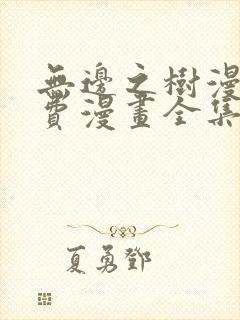 無邊之樹漫
費漫畫全集
夏勇鄧